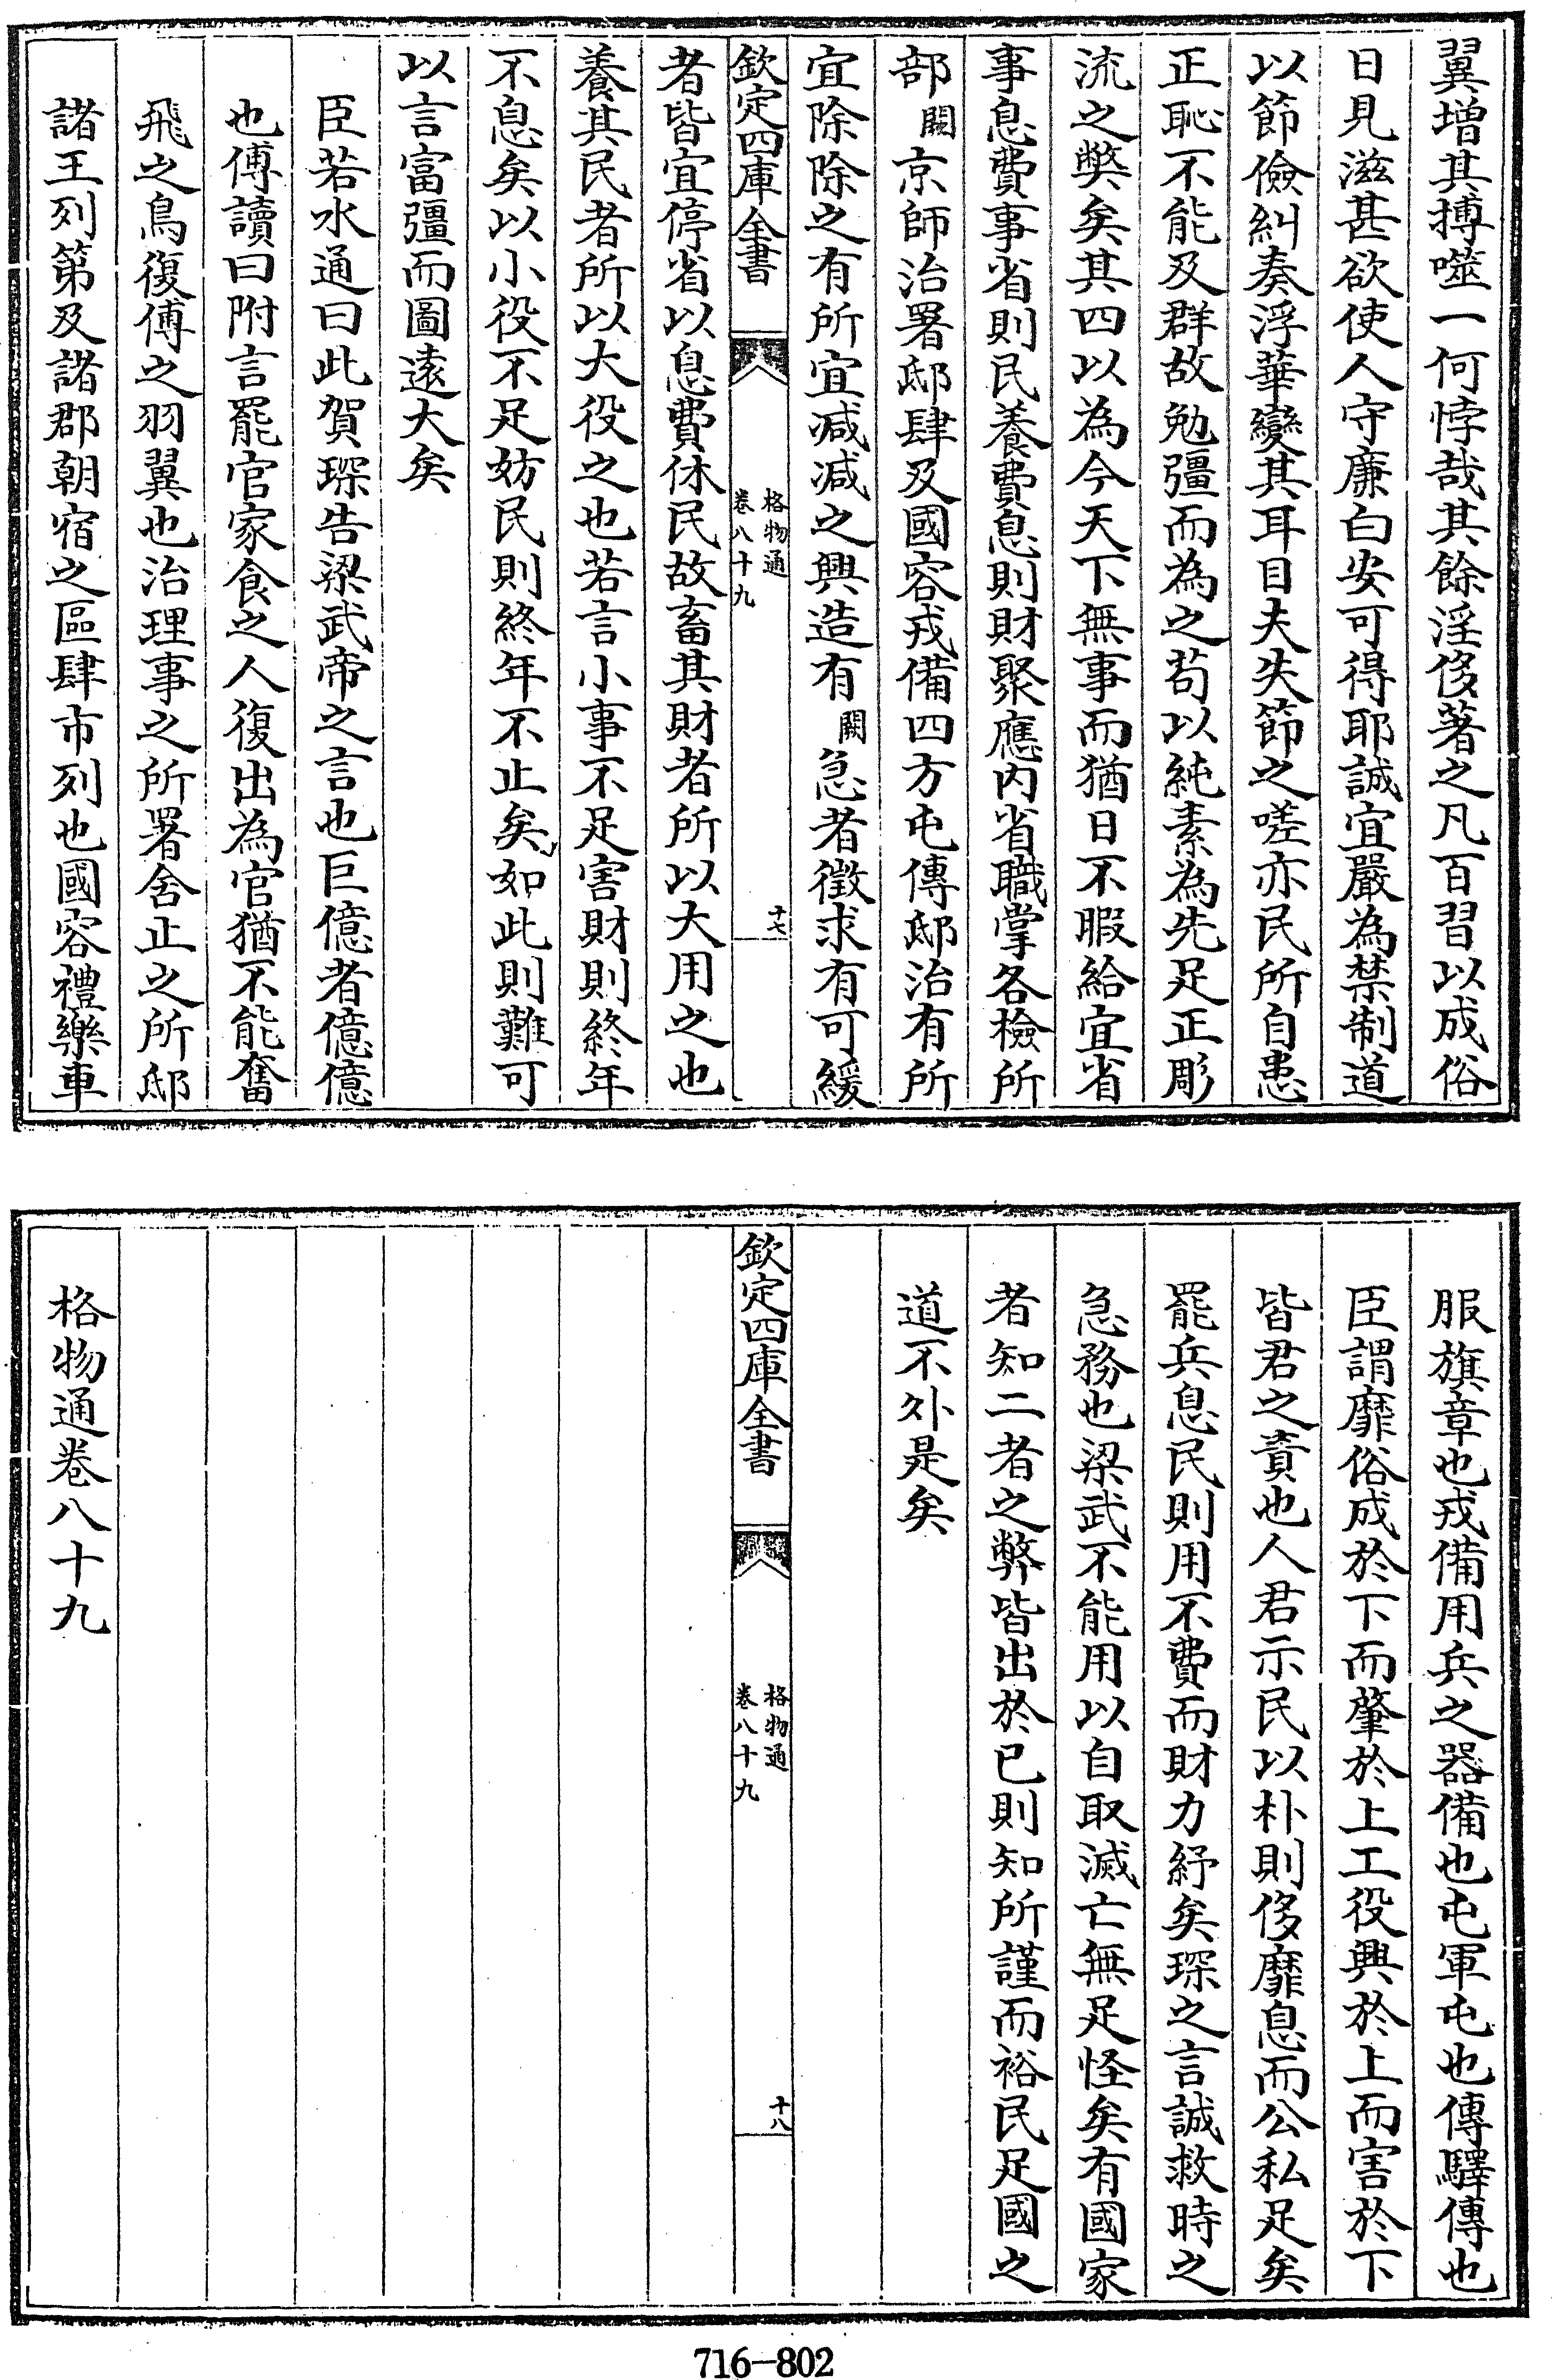 翼增其搏噬一何悖哉其餘淫侈著之凡百習以成俗
日見滋甚欲使人守廉白安可得耶誠宜嚴為禁制道
以節儉糾奏浮華變其耳目夫失節之嗟亦民所自患
正恥不能及群故勉彊而為之苟以純素為先足正彫
流之獘矣其四以為今天下無事而猶日不暇給宜省
事息費事省則民養費息則財聚應內省職掌各檢所
部闕京師治署邸肆及國容戎備四方屯傳邸治有所
宜除除之有所宜減減之興造有闕急者徵求有可緩
欽定四庫全書
格物通
卷八十九
十七
者皆宜停省以息費休民故畜其財者所以大用之也
養其民者所以大役之也若言小事不足害財則終年
不息矣以小役不足妨民則終年不止矣如此則難可
以言富彊而圖遠大矣
臣若水通曰此賀琛告梁武帝之言也巨億者億億
也傅讀曰附言罷官家食之人復出為官猶不能奮
飛之鳥復傅之羽翼也治理事之所署舍止之所邸
諸王列第及諸郡朝宿之區肆市列也國容禮樂車
服旗章也戎備用兵之器備也屯軍屯也傳驛傳也
臣謂靡俗成於下而肇於上工役興於上而害於下
皆君之責也人君示民以朴則侈靡息而公私足矣
罷兵息民則用不費而財力紓矣琛之言誠救時之
急務也梁武不能用以自取滅亡無足怪矣有國家
者知二者之弊皆出於已則知所謹而裕民足國之
道不外是矣
欽定四庫全書
格物通
卷八十九
十八
格物通卷八十九
716-802